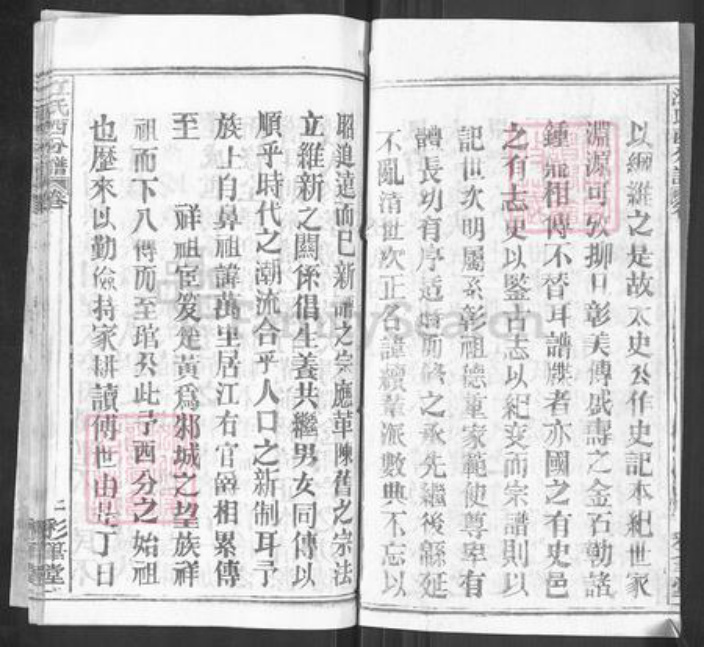 以綱維之是故太史公作史記本紀世家
淵源可攷柳口彰美傳盛壽之金石勒諸
鍾鼎相傳不朁耳譜牒者亦國之有史邑
之有志史以鑒古志以紀变而宗譜則以
記世次明屬系彰祖德重家範使尊卑有
體長幼有序适時而修之承先繼後緜延
不亂清世次正名諱續輩派數典不忘以
昭追遠而已新譜之宗應革陳舊之宗法
立維新之關係倡生養共繼男女同傳以
順乎時代之潮流合乎人口之新制耳予
族上自鼻祖諱萬里居江右官爵相累傳
至 祥祖宦笈楚黃爲邾城之望族祥
祖而下八傳而至琯公此予酉分之始祖
也歷來以勤儉持家耕讀傳世由是丁口
江氏酉分譜 卷 二 彩筆堂
FamilySearch